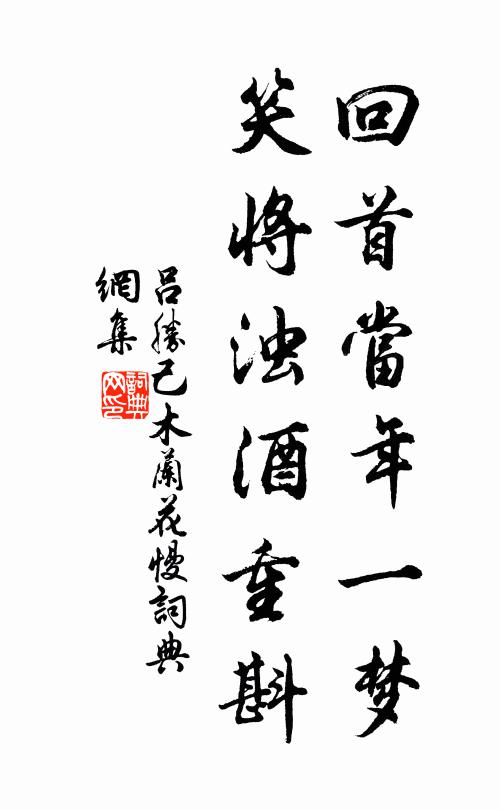 回首當年一梦
笑将浊酒重斟
吕勝己木蘭花慢詞典
網集
詞典
网印